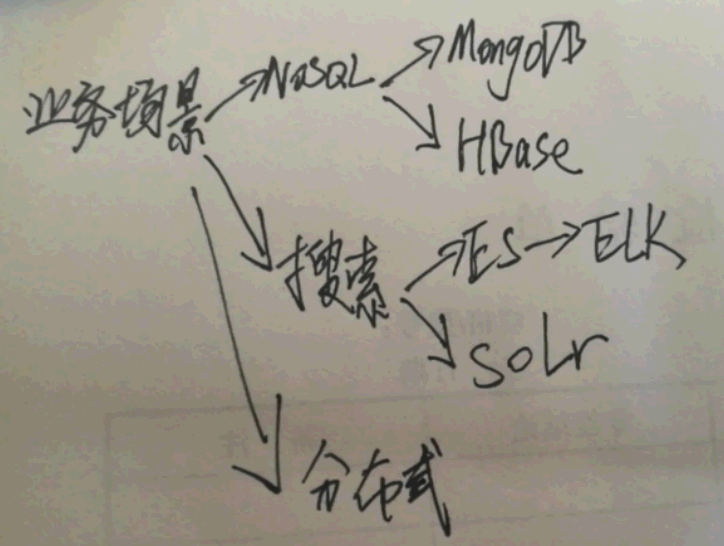 业务场景
NoSQL
MongoDB
HBase
搜索
ES
ELK
SOLr
分布式